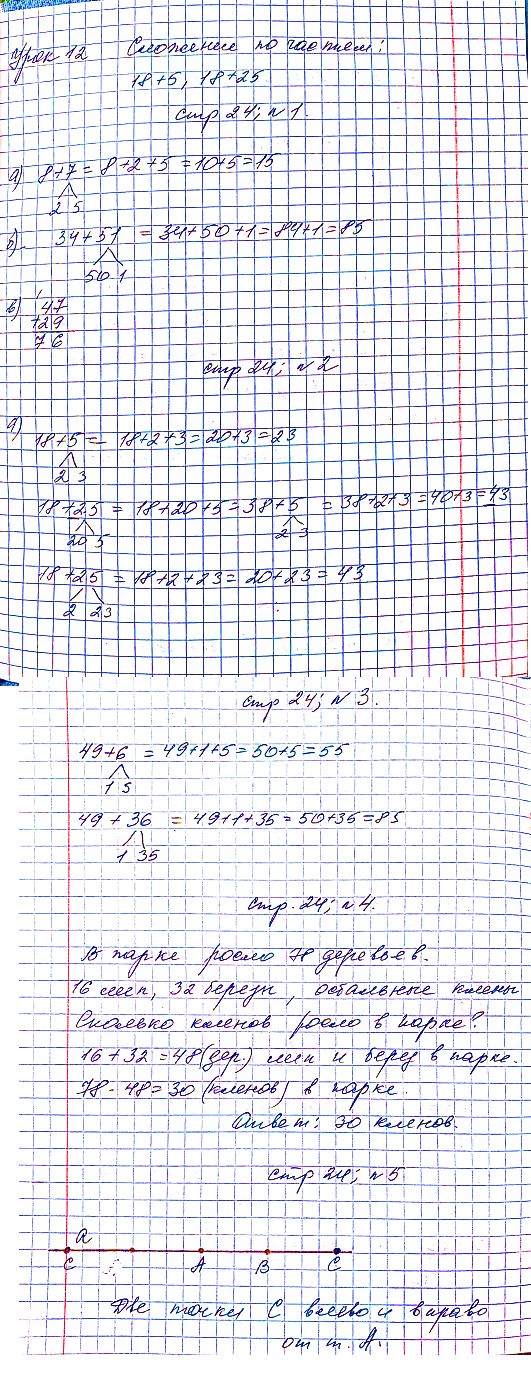 Урок 12 Сложение по частям:
18+5, 18+25
стр 24; N 1.
а) 8+7 = 8+2+5 = 10+5 = 15
2 5
б) 34+51 = 34+50+1 = 84+1 = 85
50 1
в) 47
+29
76
стр 24; N 2
а)
18+5 = 18+2+3 = 20+3 = 23
2 3
18+25 = 18+20+5 = 38+5 = 38+2+3 = 40+3 = 43
20 5 2 3
18+25 = 18+2+23 = 20+23 = 43
2 23
стр 24; N 3.
49+6 = 49+1+5 = 50+5 = 55
1 5
49 + 36 = 49+1+35 = 50+35 = 85
1 35
стр. 24; N 4.
В парке росло 78 деревьев.
16 лип, 32 березы, остальные клены
Сколько кленов росло в парке?
16+32 = 48 (дер.) лип и берез в парке.
78-48 = 30 (кленов) в парке.
Ответ: 30 кленов.
стр 24; N 5
а
С А В С
Две точки С влево и вправо
от т. А.